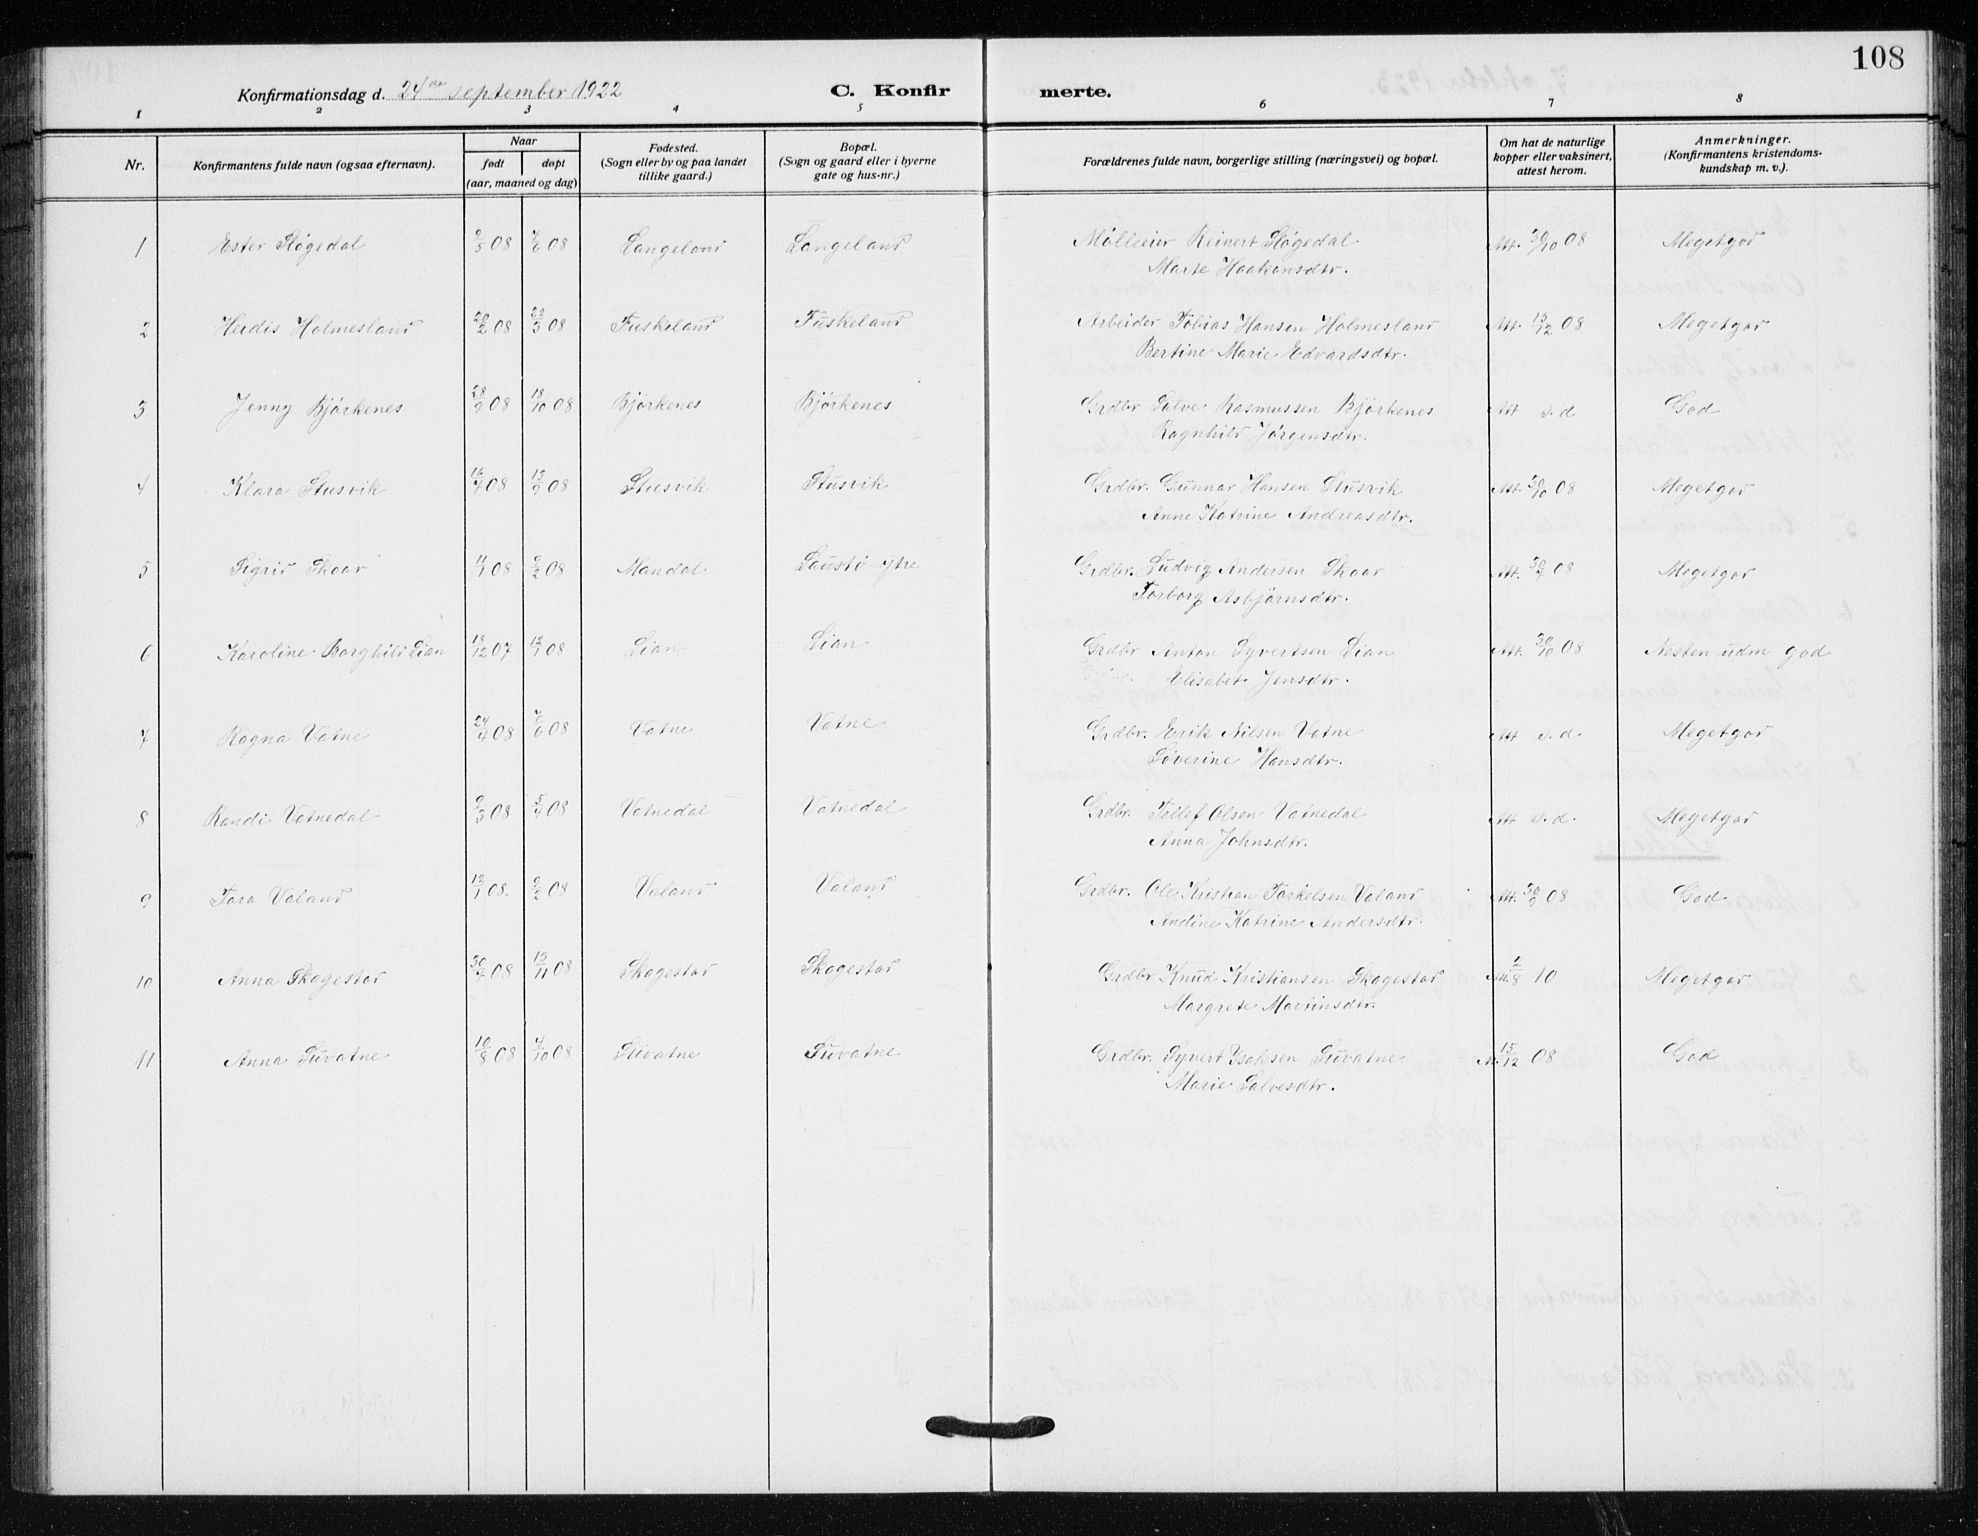 108
Konfirmationsdag d. 24de september 1922 C. Konfirmerte.
1 2 3 4 5 6 7 8
Nr. Konfirmantens fulde navn (ogsaa efternavn). Naar født døpt (aar, maaned og dag) Fødested. (Sogn eller by og paa landet tillike gaard.) Bopæl. (Sogn og gaard eller i byerne gate og hus-nr.) Forældrenes fulde navn, borgerlige stilling (næringsvei) og bopæl. Om hat de naturlige kopper eller vaksinert, attest herom. Anmerkninger. (Konfirmantens kristendomskundskap m. v.).
1 Ester Støgedal 9/5 08 7/6 08 Langeland Langeland Mølleeier Reinert Støgedal Att. 30/10 08 Megetgod
Marte Haakonsdtr.
2 Herdis Holmesland 20/2 08 22/3 08 Fuskeland Fuskeland Arbeider Tobias Hansen Holmesland Att. 13/12 08 Megetgod
Bertine Marie Edvardsdtr.
3 Jenny Bjørkenes 28/9 08 18/10 08 Bjørkenes Bjørkenes Grdbr Salve Rasmussen Bjørkenes Att s. d God
Ragnhild Jørgensdtr.
4 Klara Stusvik 16/7 08 13/9 08 Stusvik Stusvik Grdbr. Gunnar Hansen Stusvik Att. 30/10 08 Megetgod
Anne Katrine Andreasdtr.
5 Sigrid Skaar 4/1 08 9/2 08 Mandal Saustø ytre Grdbr. Ludvig Andersen Skaar Att. 30/9 08 Megetgod
Torborg Asbjørnsdtr.
6 Karoline Borghild Lian 18/12 07 12/1 08 Lian Lian Grdbr Anton Syvertsen Lian Att. 30/10 08 Nesten udm god
Elisabet Jensdtr.
7 Ragna Vatne 24/4 08 7/6 08 Vatne Vatne Grdbr. Erik Nilsen Vatne Att s. d. Megetgod
Søverine Hansdtr.
8 Randi Vatnedal 9/3 08 5/4 08 Vatnedal Vatnedal Grdbr. Tellef Olsen Vatnedal Att s. d. Megetgod
Anna Johnsdtr.
9 Tora Valand 12/1 08. 9/2 08 Valand Valand Grdbr. Ole Kristian Torkelsen Valand Att. 30/9 08 God
Andine Katrine Andersdtr.
10 Anna Skogestad 30/7 08 15/11 08 Skogestad Skogestad Grdbr Knud Kristiansen Skogestad Att. 2/8 10 Megetgod
Margrete Martinsdtr.
11 Anna Tuvatne 10/8 08 4/10 08 Tuvatne Tuvatne Grdbr. Syvert Isaksen Tuvatne A. 15/12 08 God
Marie Salvesdtr.